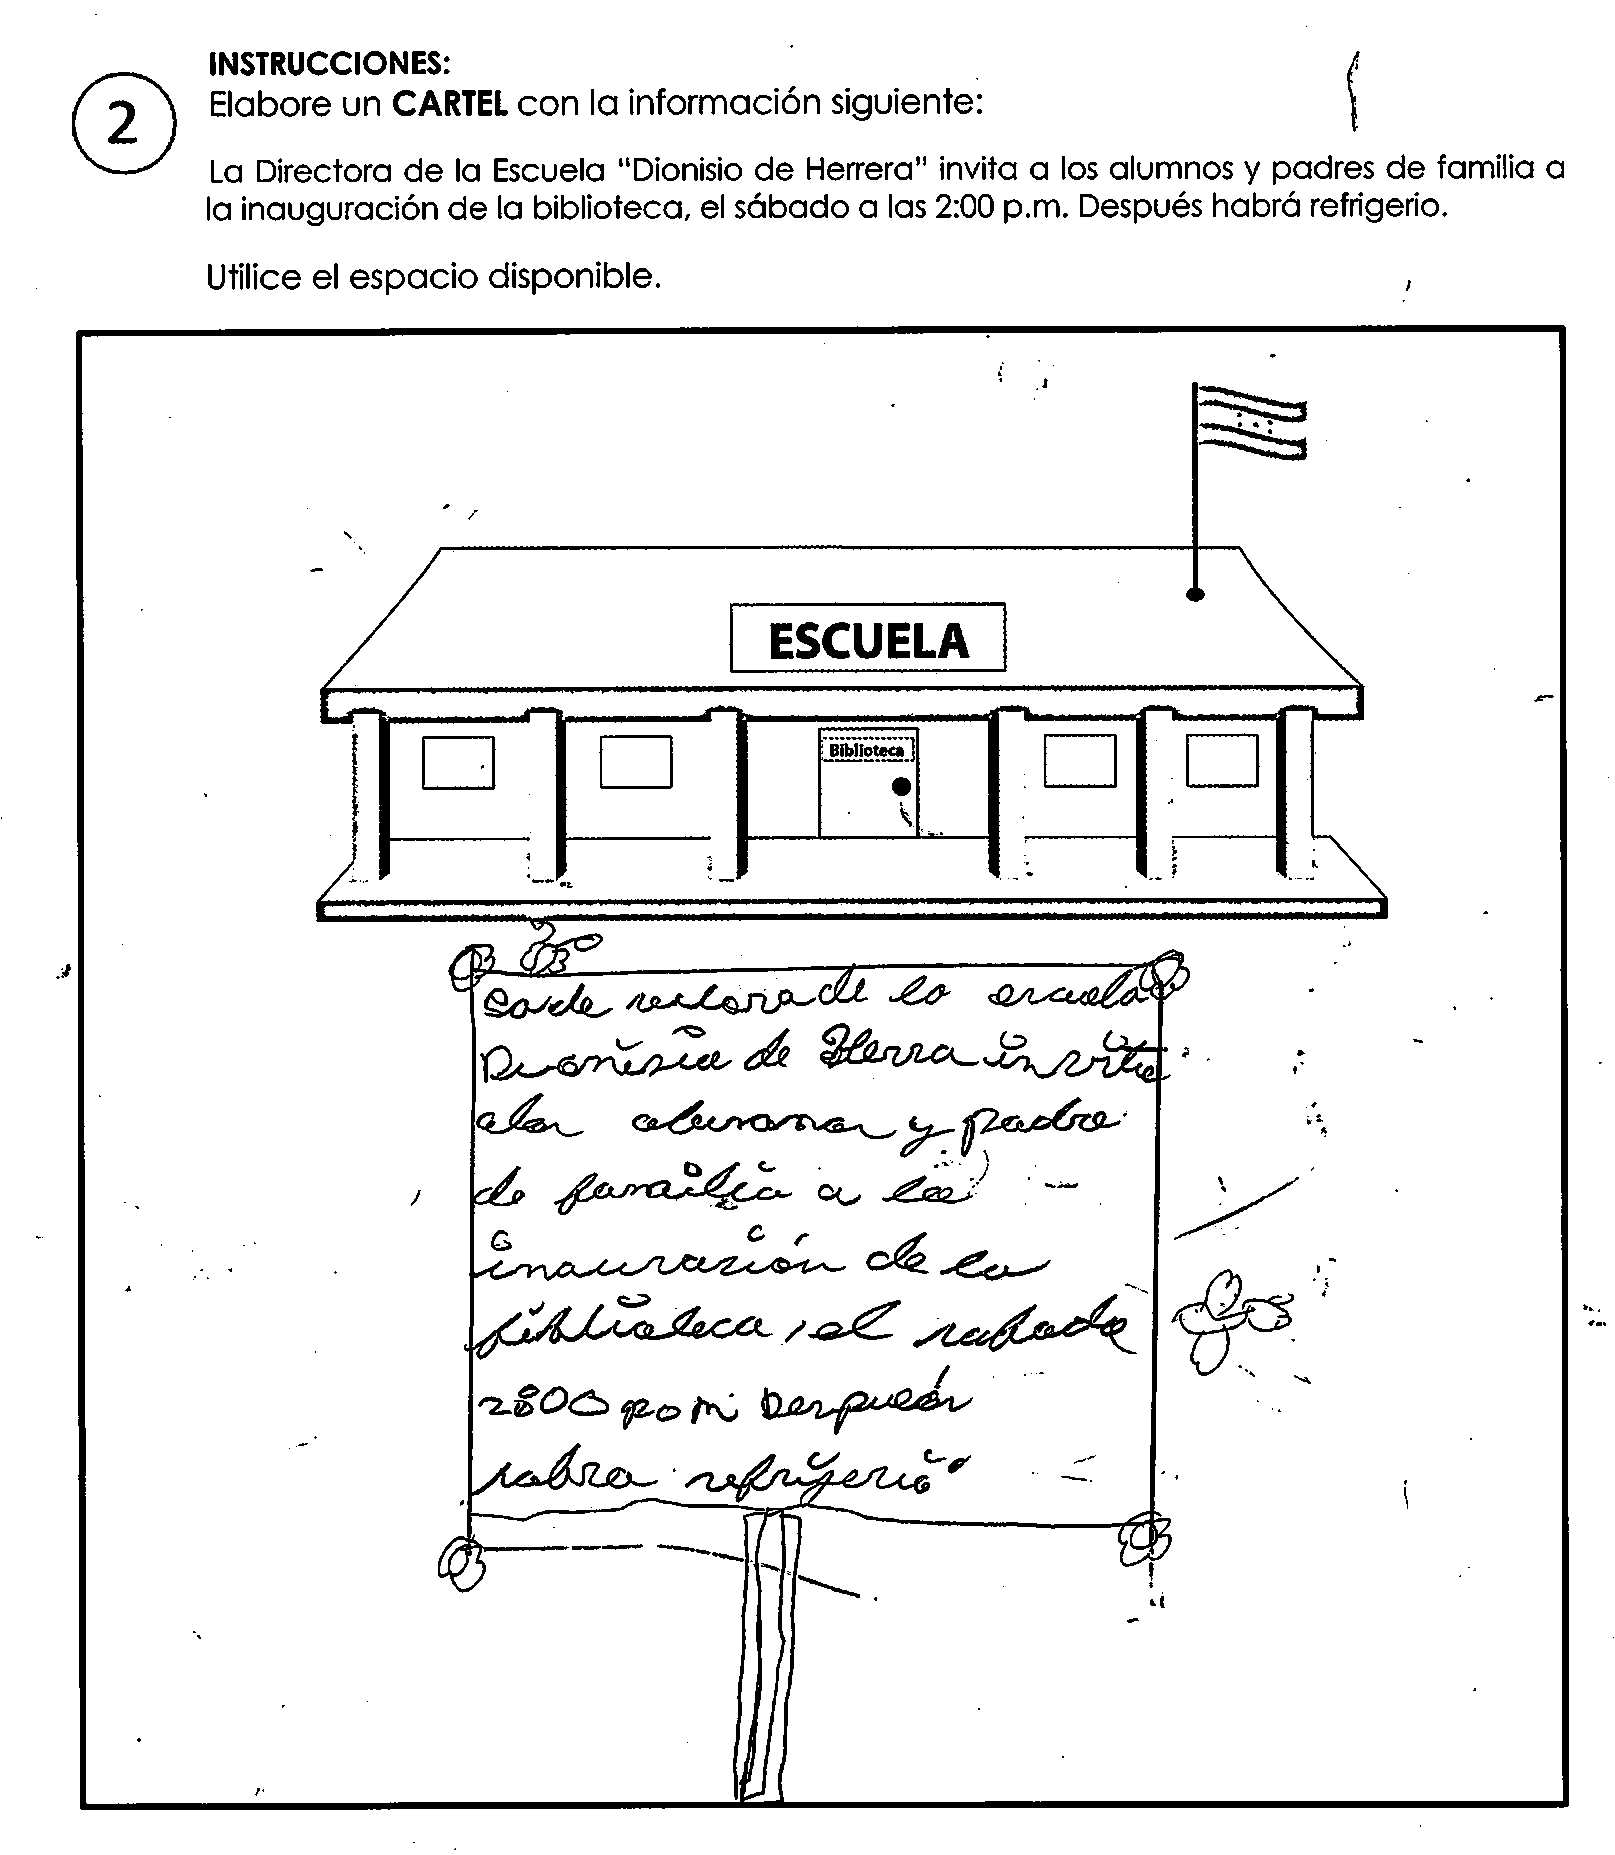 INSTRUCCIONES:
2
Elabore un CARTEL con la información siguiente:
La Directora de la Escuela "Dionisio de Herrera" invita a los alumnos y padres de familia a
la inauguración de la biblioteca, el sábado a las 2:00 p.m. Después habrá refrigerio.
Utilice el espacio disponible.
ESCUELA
Biblioteca
de la escuela
de Herra invita
alos alumnos y padre
de familia a la
inaurasión de la
biblioteca, el sabado
2:00 p.m Después
habra refrigerio.